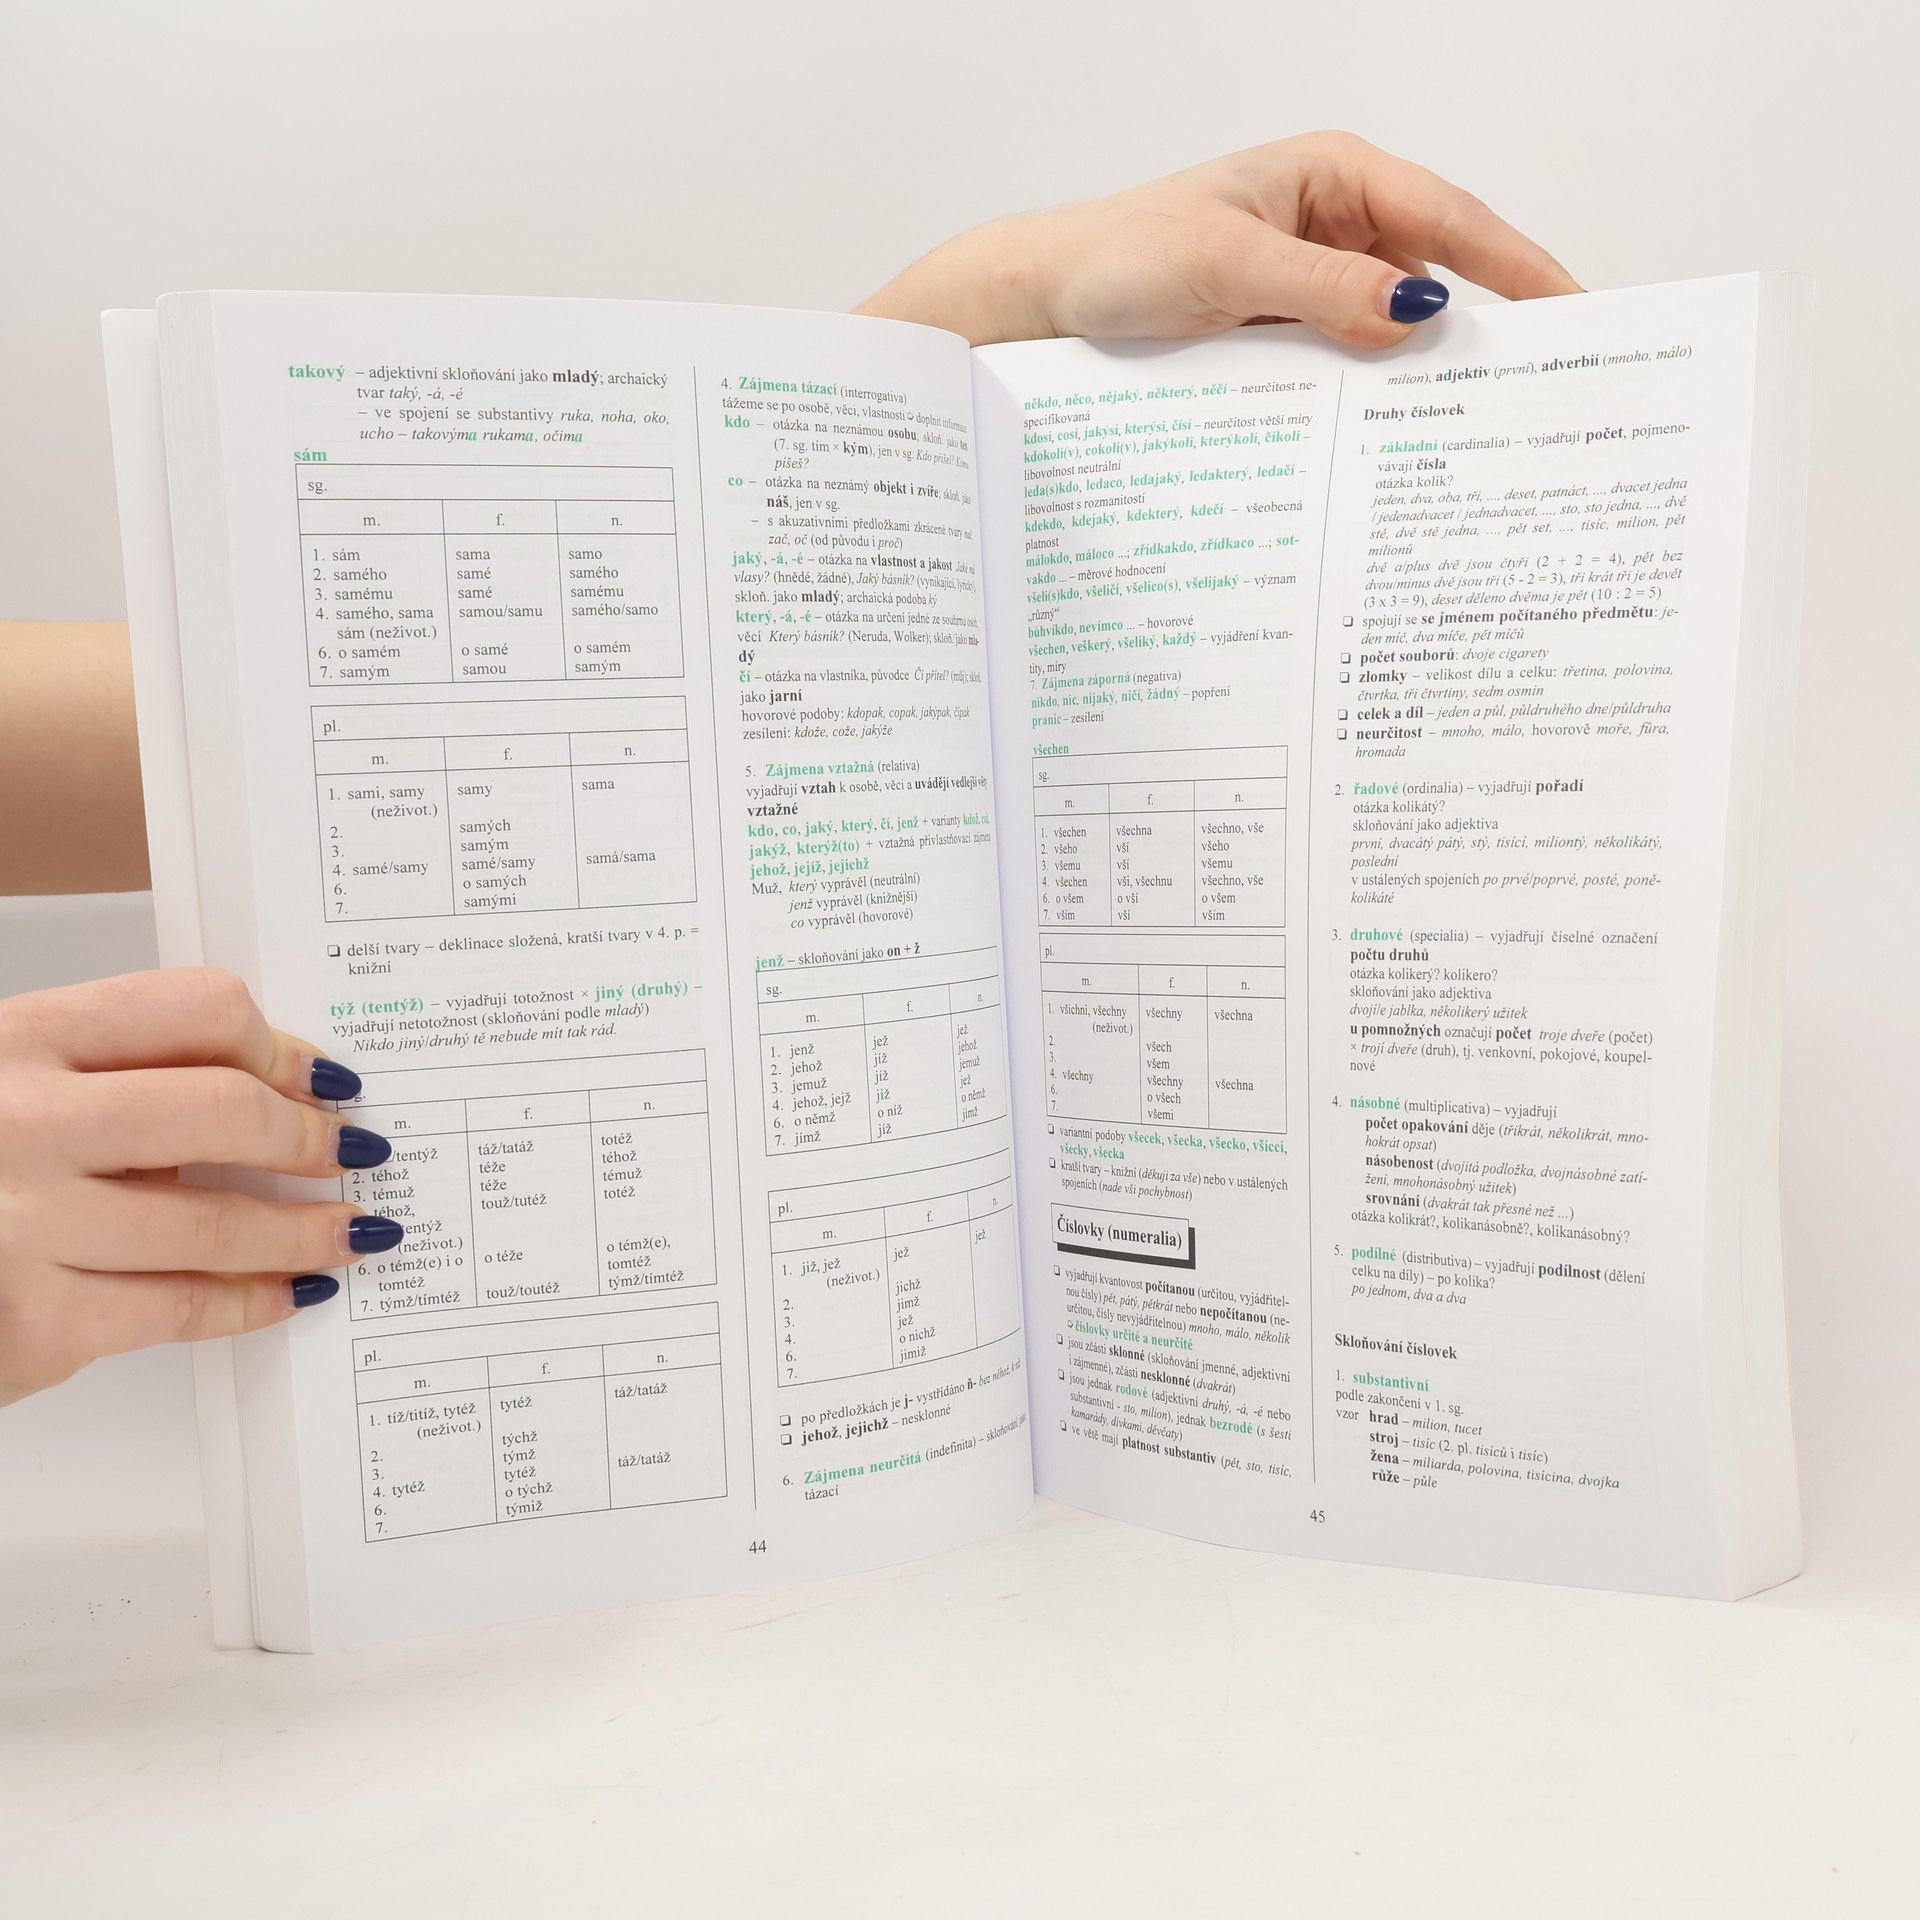 takový – adjektivní skloňování jako mladý; archaický
tvar taký, -á, -é
– ve spojení se substantivy ruka, noha, oko,
ucho – takovýma rukama, očima
sám
sg.
m. f. n.
1. sám sama samo
2. samého samé samého
3. samému samé samému
4. samého, sama samou/samu samého/samo
sám (neživot.)
6. o samém o samé o samém
7. samým samou samým
pl.
m. f. n.
1. sami, samy samy sama
(neživot.)
2. samých
3. samým
4. samé/samy samé/samy samá/sama
6. o samých
7. samými
❏ delší tvary – deklinace složená, kratší tvary v 4. p. =
knižní
týž (tentýž) – vyjadřují totožnost × jiný (druhý) –
vyjadřují netotožnost (skloňování podle mladý)
Nikdo jiný/druhý tě nebude mít tak rád.
m. f. n.
/tentýž táž/tatáž totéž
2. téhož téže téhož
3. témuž téže témuž
téhož, touž/tutéž totéž
entýž
(neživot.)
6. o témž(e) i o o téže o témž(e),
tomtéž tomtéž
7. týmž/tímtéž touž/toutéž týmž/tímtéž
pl.
m. f. n.
1. tíž/titíž, tytéž tytéž táž/tatáž
(neživot.)
2. týchž
3. týmž
4. tytéž tytéž táž/tatáž
6. o týchž
7. týmiž
4. Zájmena tázací (interrogativa)
tážeme se po osobě, věci, vlastnosti doplnit informace
kdo – otázka na neznámou osobu; skloň. jako ten
(7. sg. tím × kým), jen v sg. Kdo přišel? Komu
píšeš?
co – otázka na neznámý objekt i zvíře; skloň. jako
náš, jen v sg.
– s akuzativními předložkami zkrácené tvary nač,
zač, oč (od původu i proč)
jaký, -á, -é – otázka na vlastnost a jakost Jaké má
vlasy? (hnědé, žádné), Jaký básník? (vynikající, lyrický),
skloň. jako mladý; archaická podoba ký
který, -á, -é – otázka na určení jedné ze souhrnu osob,
věcí Který básník? (Neruda, Wolker); skloň. jako mla-
dý
čí – otázka na vlastníka, původce Čí přítel? (můj); skloň.
jako jarní
hovorové podoby: kdopak, copak, jakýpak, čípak
zesílení: kdože, cože, jakýže
5. Zájmena vztažná (relativa)
vyjadřují vztah k osobě, věci a uvádějí vedlejší věty
vztažné
kdo, co, jaký, který, čí, jenž + varianty kdož, což,
jakýž, kterýž(to) + vztažná přivlastňovací zájmena
jehož, jejíž, jejichž
Muž, který vyprávěl (neutrální)
jenž vyprávěl (knižnější)
co vyprávěl (hovorové)
jenž – skloňování jako on + ž
sg.
m. f. n.
1. jenž jež jež
2. jehož jíž jehož
3. jemuž jíž jemuž
4. jehož, jejž již jež
6. o němž o níž o němž
7. jímž jíž jímž
pl.
m. f. n.
1. již, jež jež jež
(neživot.)
2. jichž
3. jimž
4. jež
6. o nichž
7. jimiž
❏ po předložkách je j- vystřídáno ň- bez něhož, k níž
❏ jehož, jejichž – nesklonné
6. Zájmena neurčitá (indefinita) – skloňování jako
tázací
44
někdo, něco, nějaký, některý, něčí – neurčitost ne-
specifikovaná
kdosi, cosi, jakýsi, kterýsi, čísi – neurčitost větší míry
kdokoli(v), cokoli(v), jakýkoli, kterýkoli, číkoli –
libovolnost neutrální
leda(s)kdo, ledaco, ledajaký, ledakterý, ledačí –
libovolnost s rozmanitostí
kdekdo, kdejaký, kdekterý, kdečí – všeobecná
platnost
málokdo, máloco ...; zřídkakdo, zřídkaco ...; sot-
vakdo ... – měrové hodnocení
všeli(s)kdo, všeličí, všelico(s), všelijaký – význam
„různý“
bůhvíkdo, nevímco ... – hovorové
všechen, veškerý, všeliký, každý – vyjádření kvan-
tity, míry
7. Zájmena záporná (negativa)
nikdo, nic, nijaký, ničí, žádný – popření
pranic – zesílení
všechen
sg.
m. f. n.
1. všechen všechna všechno, vše
2. všeho vší všeho
3. všemu vší všemu
4. všechen vši, všechnu všechno, vše
6. o všem o vší o všem
7. vším vší vším
pl.
m. f. n.
1. všichni, všechny všechny všechna
(neživot.)
2. všech
3. všem
4. všechny všechny všechna
6. o všech
7. všemi
❏ variantní podoby všecek, všecka, všecko, všicci,
všecky, všecka
❏ kratší tvary – knižní (děkuji za vše) nebo v ustálených
spojeních (nade vši pochybnost)
Číslovky (numeralia)
❏ vyjadřují kvantovost počítanou (určitou, vyjádřitel-
nou čísly) pět, pátý, pětkrát nebo nepočítanou (ne-
určitou, čísly nevyjádřitelnou) mnoho, málo, několik
číslovky určité a neurčité
❏ jsou zčásti sklonné (skloňování jmenné, adjektivní
i zájmenné), zčásti nesklonné (dvakrát)
❏ jsou jednak rodové (adjektivní druhý, -á, -é nebo
substantivní - sto, milion), jednak bezrodé (s šesti
kamarády, dívkami, děvčaty)
❏ ve větě mají platnost substantiv (pět, sto, tisíc,
milion), adjektiv (první), adverbií (mnoho, málo)
Druhy číslovek
1. základní (cardinalia) – vyjadřují počet, pojmeno-
vávají čísla
otázka kolik?
jeden, dva, oba, tři, ..., deset, patnáct, ..., dvacet jedna
/ jedenadvacet / jednadvacet, ..., sto, sto jedna, ..., dvě
stě, dvě stě jedna, ..., pět set, ..., tisíc, milion, pět
milionů
dvě a/plus dvě jsou čtyři (2 + 2 = 4), pět bez
dvou/minus dvě jsou tři (5 - 2 = 3), tři krát tři je devět
(3 x 3 = 9), deset děleno dvěma je pět (10 : 2 = 5)
❏ spojují se se jménem počítaného předmětu: je-
den míč, dva míče, pět míčů
❏ počet souborů: dvoje cigarety
❏ zlomky – velikost dílu a celku: třetina, polovina,
čtvrtka, tři čtvrtiny, sedm osmin
❏ celek a díl – jeden a půl, půldruhého dne/půldruha
❏ neurčitost – mnoho, málo, hovorově moře, fůra,
hromada
2. řadové (ordinalia) – vyjadřují pořadí
otázka kolikátý?
skloňování jako adjektiva
první, dvacátý pátý, stý, tisící, miliontý, několikátý,
poslední
v ustálených spojeních po prvé/poprvé, posté, poně-
kolikáté
3. druhové (specialia) – vyjadřují číselné označení
počtu druhů
otázka kolikerý? kolikero?
skloňování jako adjektiva
dvojí/e jablka, několikerý užitek
u pomnožných označují počet troje dveře (počet)
× trojí dveře (druh), tj. venkovní, pokojové, koupel-
nové
4. násobné (multiplicativa) – vyjadřují
počet opakování děje (třikrát, několikrát, mno-
hokrát opsat)
násobenost (dvojitá podložka, dvojnásobné zatí-
žení, mnohonásobný užitek)
srovnání (dvakrát tak přesné než ...)
otázka kolikrát?, kolikanásobně?, kolikanásobný?
5. podílné (distributiva) – vyjadřují podílnost (dělení
celku na díly) – po kolika?
po jednom, dva a dva
Skloňování číslovek
1. substantivní
podle zakončení v 1. sg.
vzor hrad – milion, tucet
stroj – tisíc (2. pl. tisíců i tisíc)
žena – miliarda, polovina, tisícina, dvojka
růže – půle
45